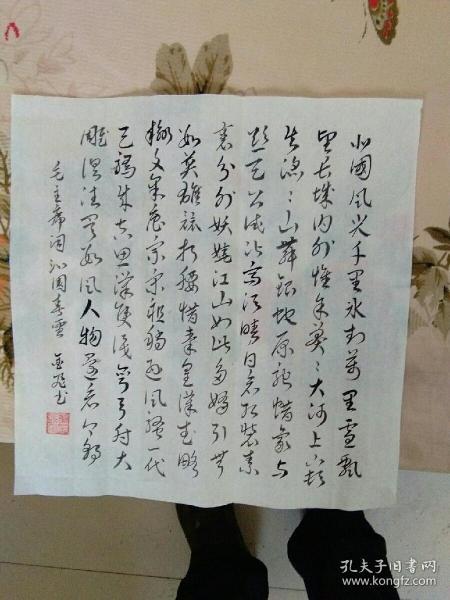 北國風光千里冰封萬里雪飄
望长城内外惟余莽〻大河上下頓
失滔〻山舞银蛇原驰蜡象欲与
天公试比高须晴日看红装素
裹分外妖娆江山如此多娇引无
数英雄竞折腰惜秦皇漢武略
输文采唐宗宋祖稍逊风骚一代
天骄成吉思汗只识弯弓射大
雕俱往矣数风流人物还看今朝
毛主席词沁园春雪
孔夫子旧书网
www.kongfz.com